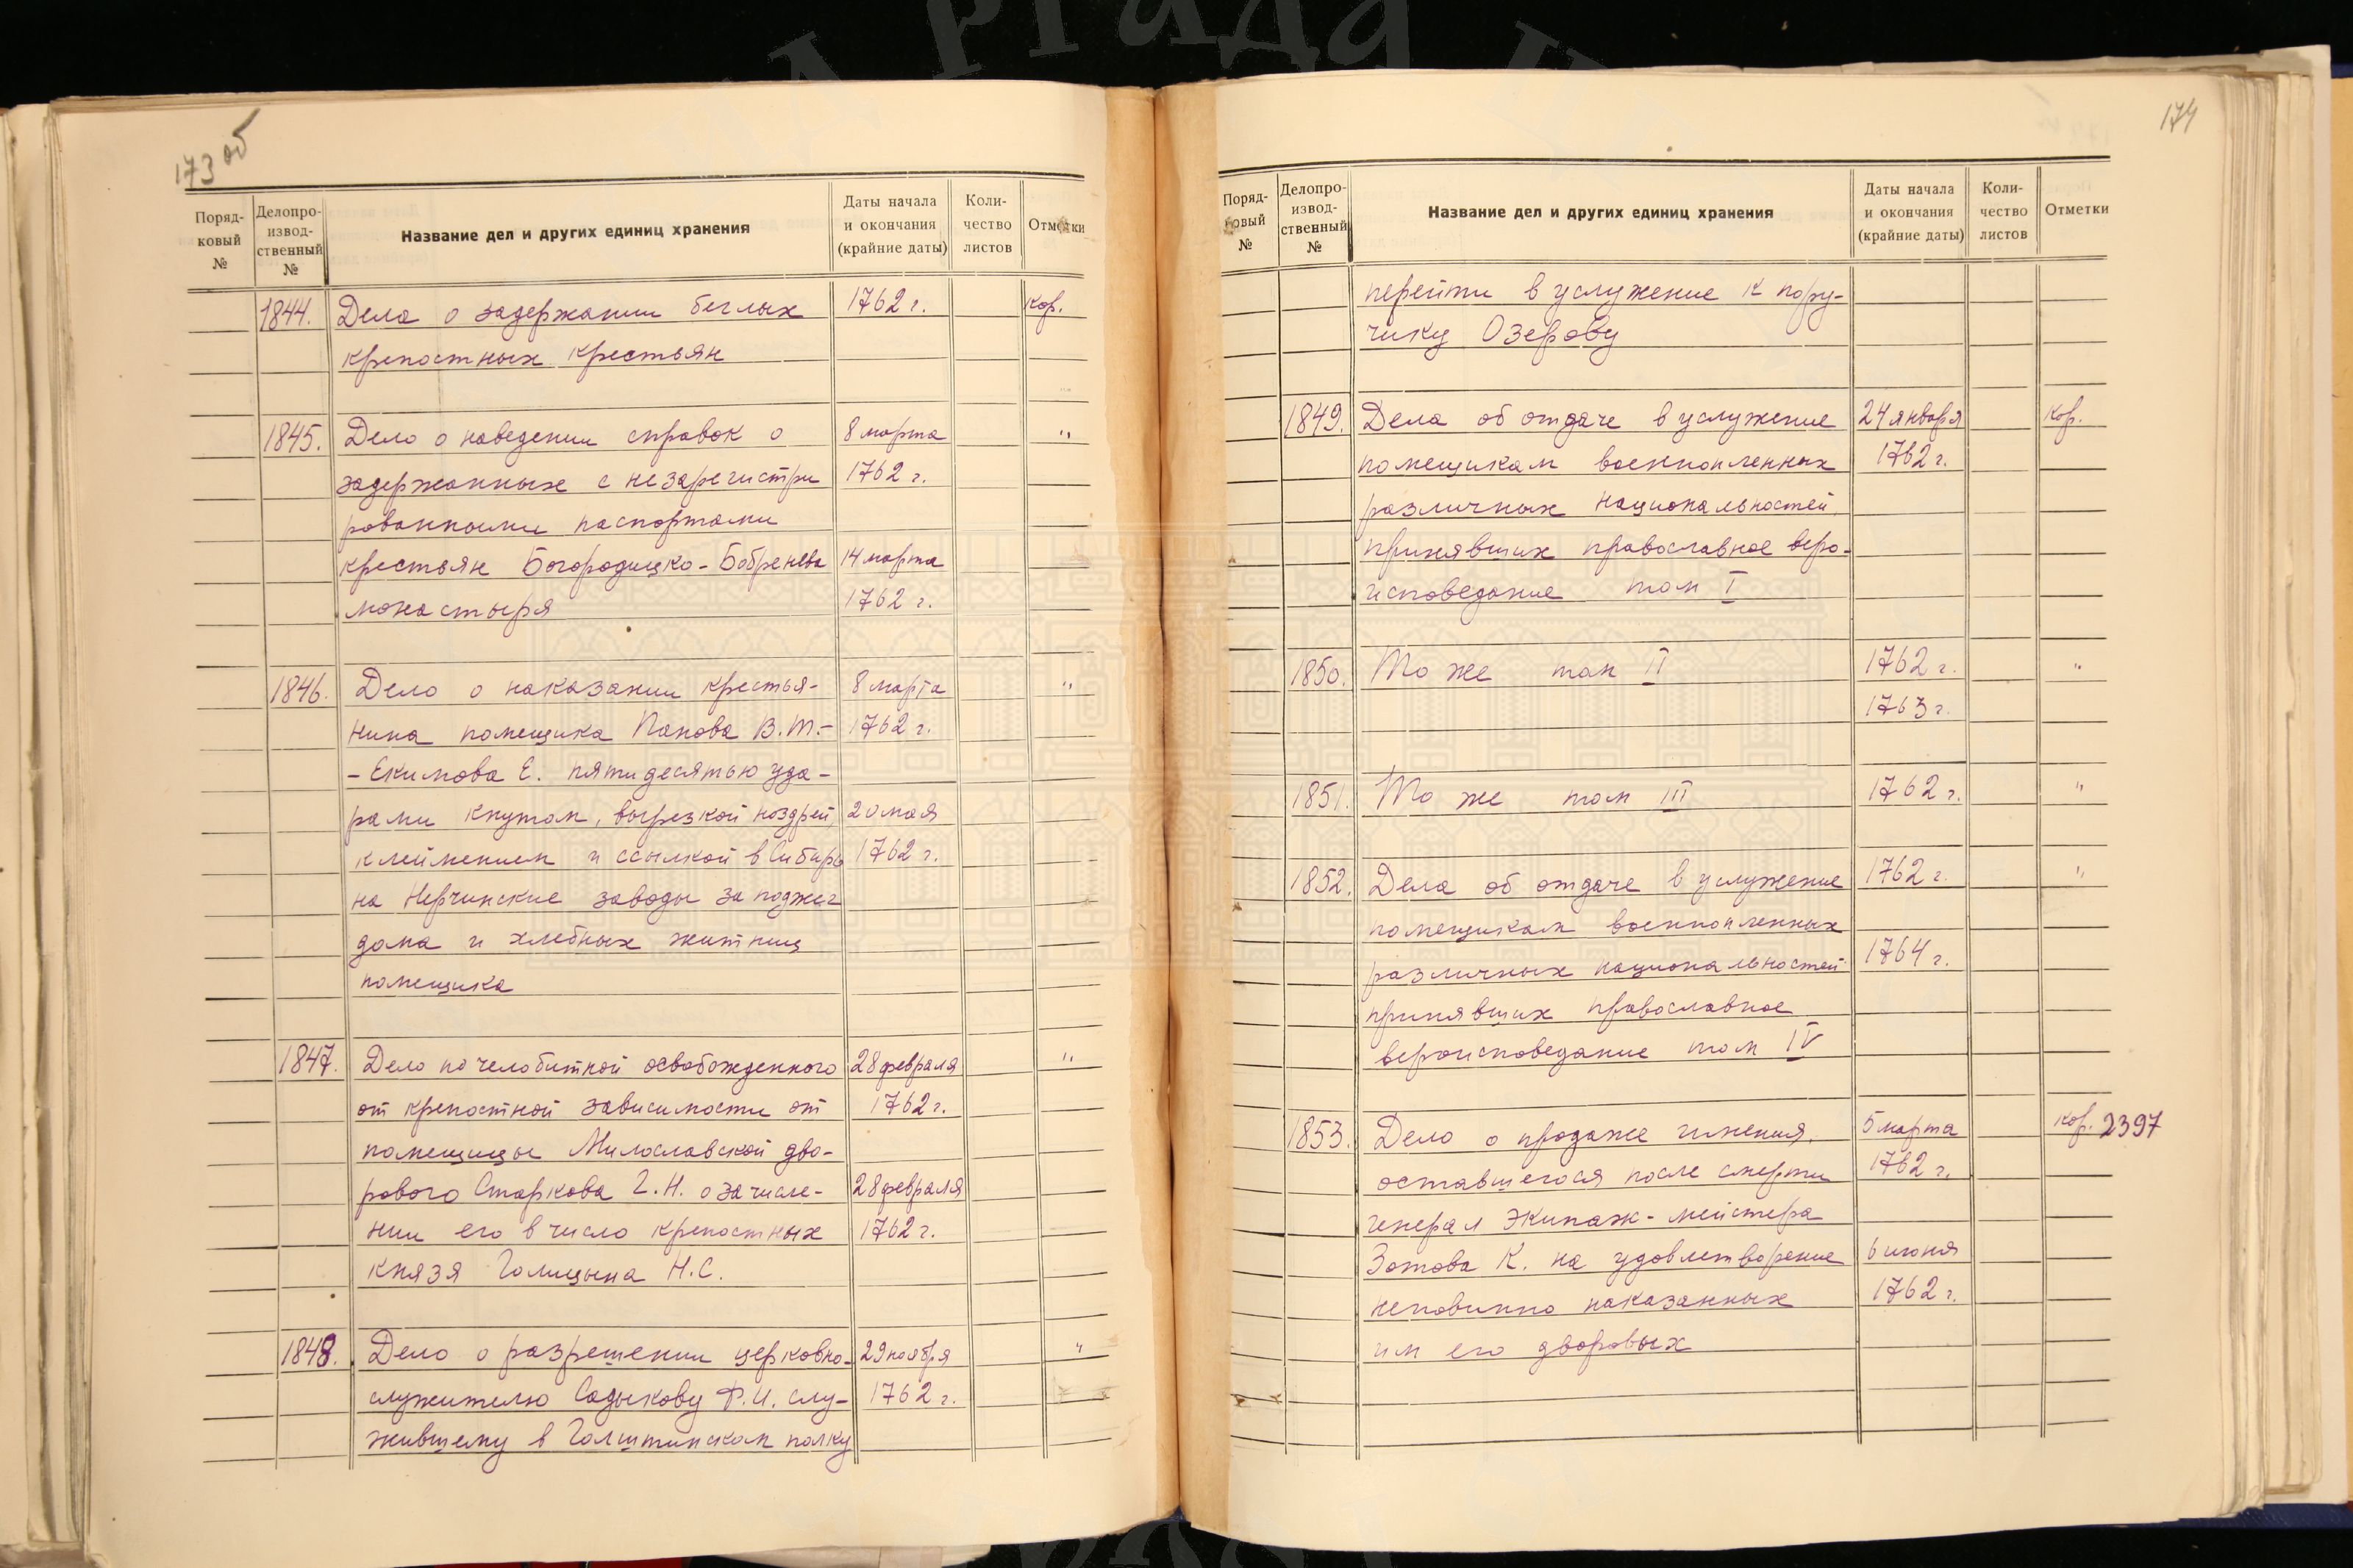 173 об
Поряд-
ковый
№
Делопро-
извод-
ственный
№
Название дел и других единиц хранения
Даты начала
и окончания
(крайние даты)
Коли-
чество
листов
Отметки
1844. Дела о задержании беглых 1762 г. кор.
крепостных крестьян
1845. Дело о наведении справок о 8 марта "
задержанных с незарегистри 1762 г.
рованными паспортами
крестьян Богородицко-Бобренева 14 марта
монастыря 1762 г.
1846. Дело о наказании крестья- 8 марта "
нина помещика Панова В.Т.- 1762 г.
- Екимова Е. пятидесятью уда-
рами кнутом, вырезкой ноздрей, 20 мая
клеймением и ссылкой в Сибирь 1762 г.
на Нерчинские заводы за поджег
дома и хлебных житниц
помещика
1847. Дело по челобитной освобожденного 28 февраля "
от крепостной зависимости от 1762 г.
помещицы Милославской дво-
рового Старкова Г.Н. о зачисле- 28 февраля
нии его в число крепостных 1762 г.
князя Голицына Н.С.
1848. Дело о разрешении церковно- 29 ноября "
служителю Садыкову Ф.И. слу- 1762 г.
жившему в Голштинском полку
174
Поряд-
ковый
№
Делопро-
извод-
ственный
№
Название дел и других единиц хранения
Даты начала
и окончания
(крайние даты)
Коли-
чество
листов
Отметки
перейти в услужение к пору-
чику Озерову
1849. Дела об отдаче в услужение 24 января кор.
помещикам военнопленных 1762 г.
различных национальностей,
принявших православное веро-
исповедание том I
1850. То же том II 1762 г. "
1763 г.
1851. То же том III 1762 г. "
1852. Дела об отдаче в услужение 1762 г. "
помещикам военнопленных
различных национальностей 1764 г.
принявших православное
вероисповедание том IV
1853. Дело о продаже имения, 5 марта кор. 2397
оставшегося после смерти 1762 г.
генерал экипаж-мейстера
Зотова К. на удовлетворение 6 июня
неповинно наказанных 1762 г.
им его дворовых